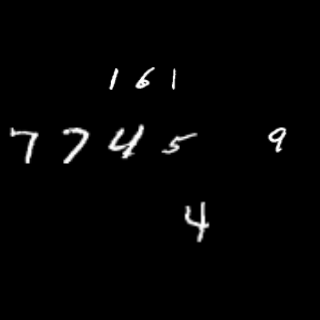 1 6 1
7 7 4 5 9
4